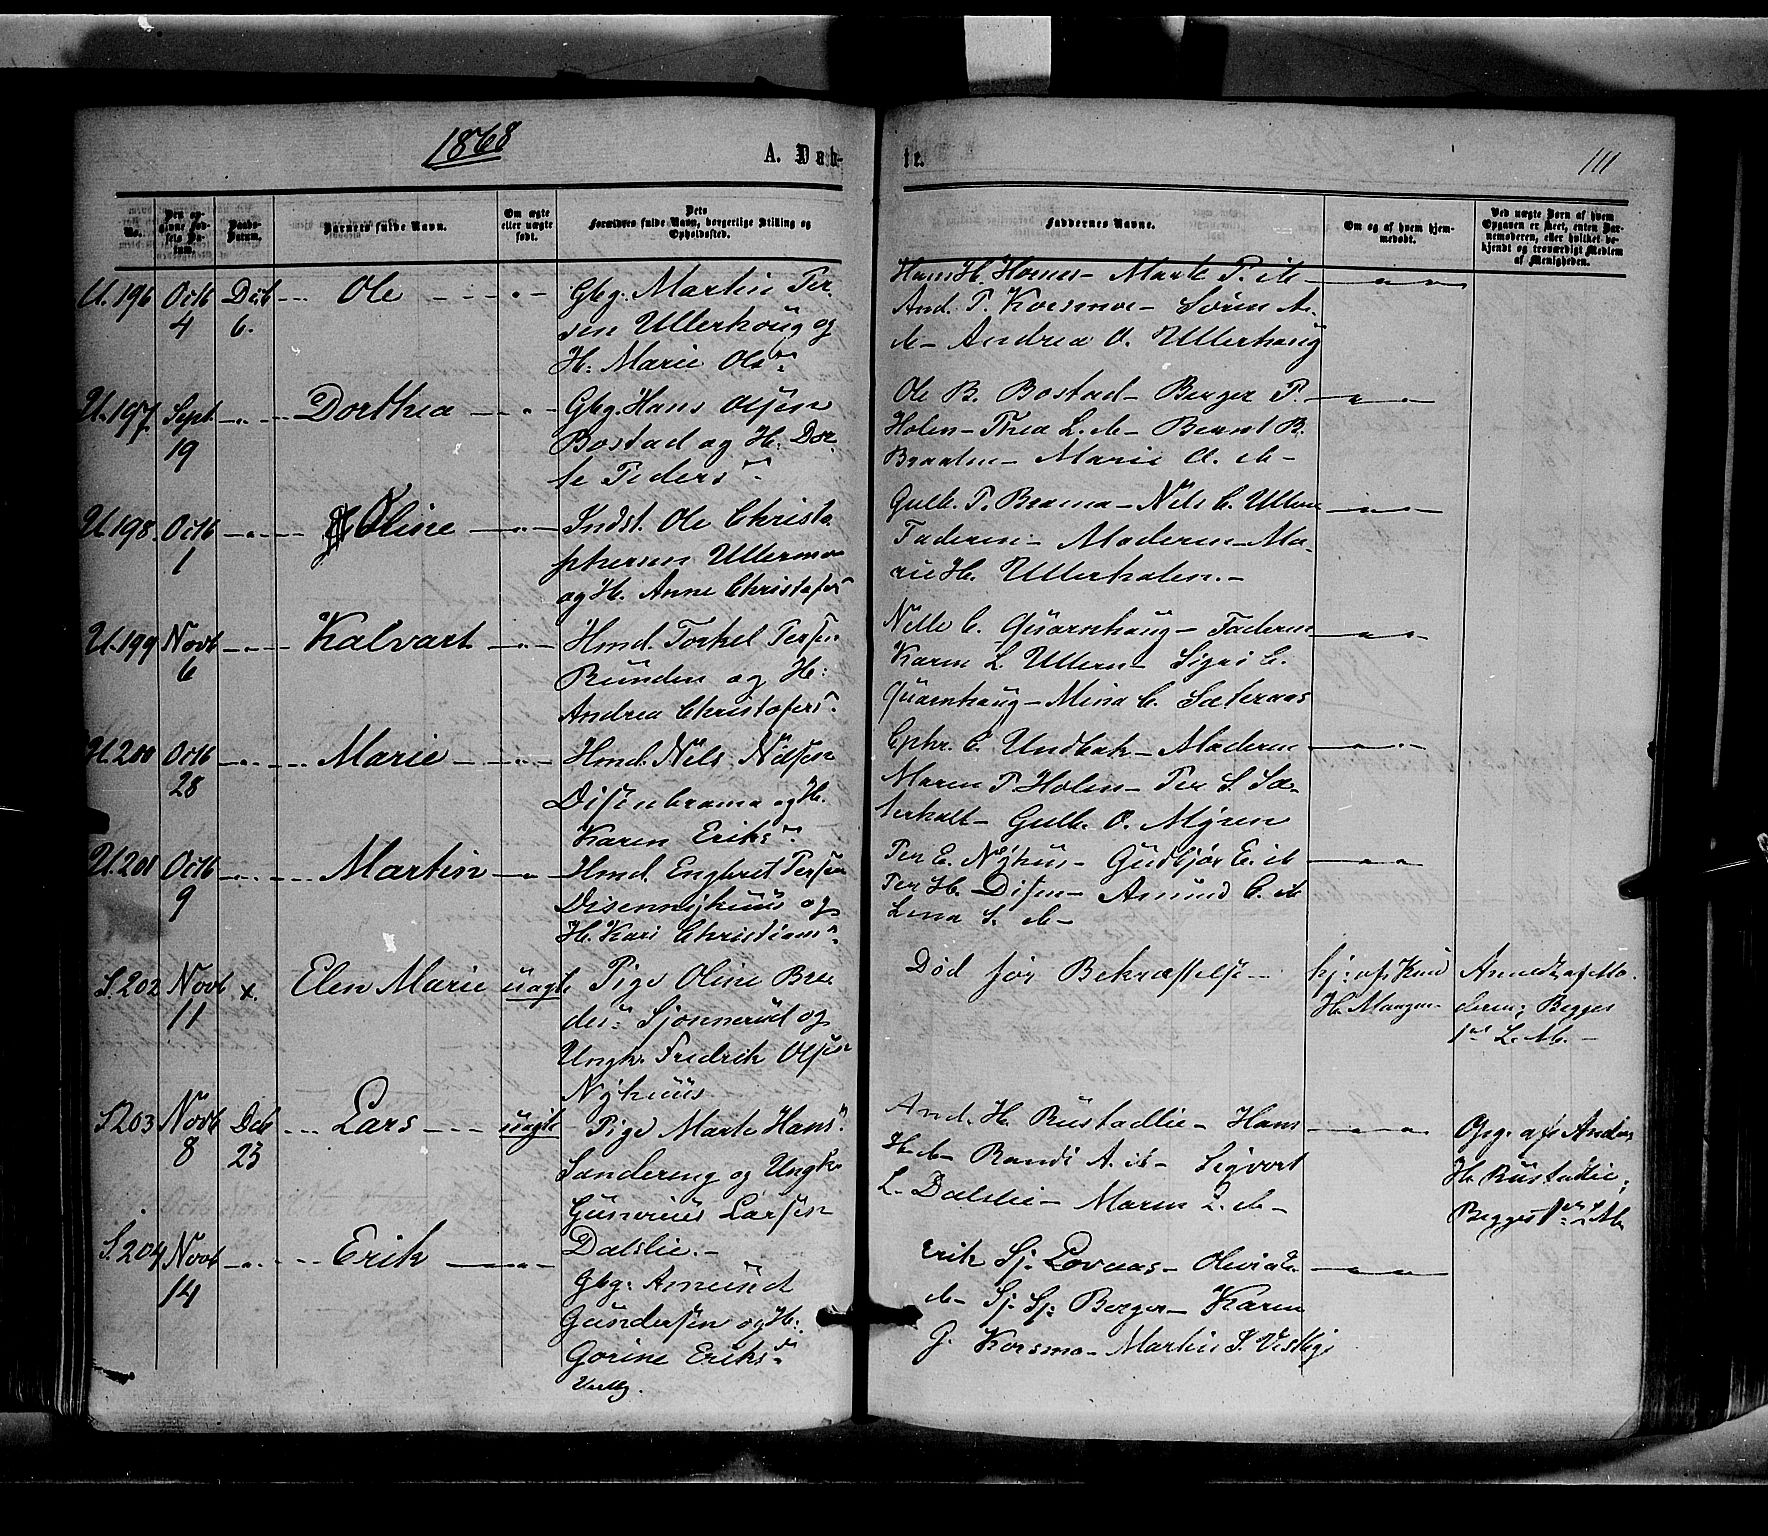 1868
A. Døb-
te.
111
No.
Den opgivne Fødsels Datum.
Daabs-Datum.
Barnets fulde Navn.
Om ægte eller uægte født.
Dets Forældres fulde Navn, borgerlige Stilling og Opholdssted.
Faddernes Navne.
Om og af hvem hjemmedøbt.
Ved uægte Børn af hvem Opgaven er skeet, enten Barnemoderen, eller hvilket bekjendt og troværdigt Medlem af Menigheden.
U.196 Octb 4 Dcb 6. Ole
Gbg. Martin Per-
sen Ullerhoug og
H: Marie Ols
Hans H. Hornes - Marte P. ib
And. P. Korsmoe - Søren A.
ib - Andrea O. Ullerhaug
U.197 Sept 19 Dorthea
Gbg. Hans Olsen
Bostad og H. Dor-
te Peders
Ole B. Bostad - Berger P.
Holen - Thea L. ib - Bernt B.
Braaten - Marie O. ib -
U.198 Octb 1 Oline
Indst. Ole Christo
phersen Ullermoe
og H. Anne Christofers
Gulb. P. Brama - Nils C. Ullern
Faderen - Moderen - Ma-
rie H. Ullerhalen. -
U.199 Novb 6 Kalvart
Hmd. Torkel Persen
Runden og H:
Andrea Christofers
Nille C. Quarnhaug - Faderen
Karen L. Ullern - Sigri C.
Quarnhaug - Mina C. Sæteraas
U.200 Octb 28 Marie
Hmd. Nils Nilsen
Disenbrama og H.
Karen Eriks
Cphr. C. Undbak - Moderen
Maren P. Holen - Per S. Sæ-
terholt - Gulb. O. Myren
U.201 Octb 9 Martin
Hmd. Engbret Persen
Disennyhuus og
H. Kari Christians
Per E. Nyhus - Gudbjør E. ib
Per H. Disen - Amund C. ib
Lena S. ib -
S.202 Novb 11 x. Elen Marie uægte
Pige Oline Bre
des Sjonnerud og
Ungk. Fredrik Olsen
Nyhuus
Død før Bekræftelse -
hj: af Knud
H. Mangen
Anmeldt af Mo-
deren; Begges
1st L. M. -
S203 Novb 8 Dcb 23 Lars uægte
Pige Marte Hans
Sandereng og Ungk.
Gunerius Larsen
Dalslie. -
And. H. Rustadlie - Hans
H. ib - Randi A. ib - Sigvart
L. Dalslie - Maren L. ib -
Opg. af Anders
H. Rustadlie;
Begges 1st L. M.
S.204 Novb 14 Erik
Gbg. Amund
Gundersen og H.
Gorine Eriks
Erik Sj. Lovaas - Olivia E.
ib - Sj. Sj. Berger - Karen
G. Korsmo - Martin S. Vestby